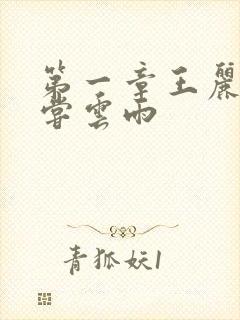 第一章王麗
嘗雲雨
青狐妖1